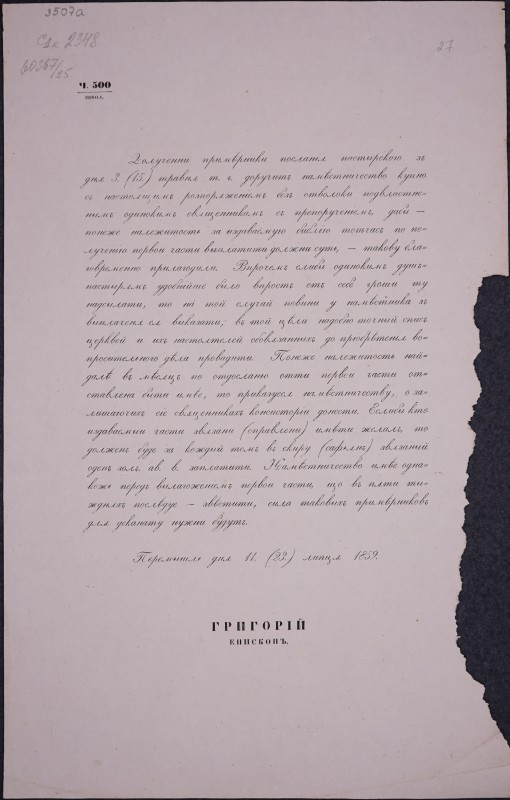 3507а
Сдк 2348
60367/25
27
Ч. 500
школ.
Долученни примѣрники посланія пастирского зъ
дня 3. (15.) травня т. г. доручитъ намѣстничество купно
съ настоящимъ розпоряженіемъ безъ отволоки подвластн-
нымъ одинокимъ священникамъ съ препорученіемъ, дабы —
понеже належитость за издаваемую библію тотчасъ по по-
лученію первои части выплатити должни суть, — такову бла-
говременно прилагодили. Впрочемъ слибы одинокимъ душъ-
пастырямъ удобнѣйше было впростъ отъ себе гроши ту
надсилати, то на той случай повини у намѣстника зъ
выплаченя ся выказати; въ той цѣли надобно точный списъ
церквей и ихъ настоятелей обвязанныхъ до пріобрѣтенія во-
просительного дѣла провадити. Понеже належитость най-
далѣ въ мѣсяцъ по отдосланю отты первои части от-
ставлена быти имѣе, то приказуєся намѣстничеству, о за-
лишаючихъ сю священникахъ консисторіи донести. Еслибы кто
издаваемыи части звязани (оправлени) имѣти желалъ, то
долженъ буде за каждый томъ въ скиру (сафьянъ) звязаный
одень зол. ав. в. заплатити. Намѣстничество имѣе одна-
коже передъ вылагоженіемъ первои части, що въ пяти ти-
ждняхъ послѣдуе — извѣстити, сила таковыхъ примѣрниковъ
для деканату нужни будутъ.
Перемышль дня 11. (23.) липця 1859.
ГРИГОРІЙ
ЕПИСКОПЪ.